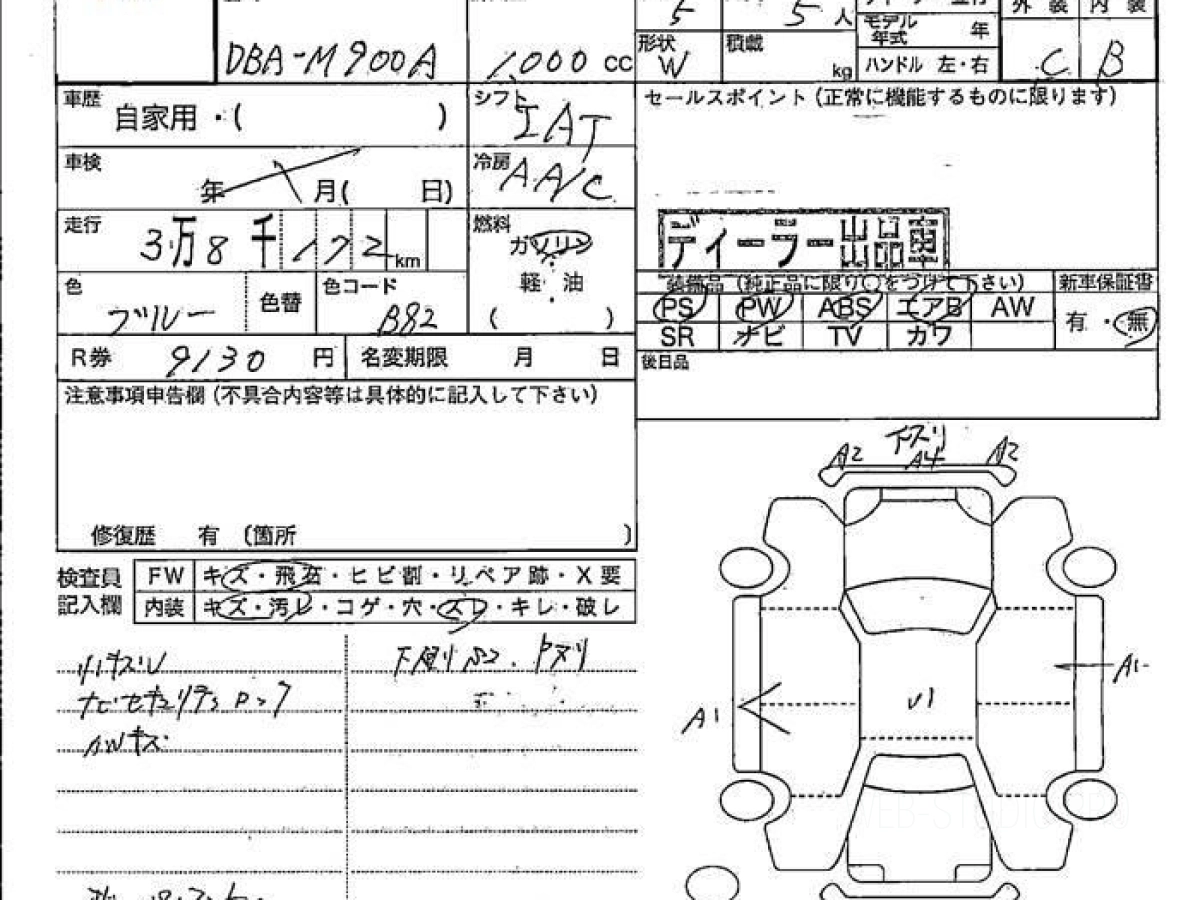 5 5 人
外装 内装
モデル年式 年
DBA-M900A 1,000 cc 形状 W 積載 kg ハンドル 左・右 C B
車歴 自家用・( )
シフト IAT
セールスポイント (正常に機能するものに限ります)
車検 年 月( 日)
冷房 AA/C
走行 3万8千172km
燃料 ガソリン
軽・油
( )
ディーラー出品車
色 ブルー 色替 色コード B82
装備品 (純正品に限り○をつけて下さい) 新車保証書
PS PW ABS エアB AW 有・無
SR ナビ TV カワ
R券 9130 円 名変期限 月 日
後日品
注意事項申告欄 (不具合内容等は具体的に記入して下さい)
修復歴 有 (箇所 )
検査員記入欄
FW キズ・飛石・ヒビ割・リペア跡・X要
内装 キズ・汚レ・コゲ・穴・スレ・キレ・破レ
ナビセキュリティロック
AWキズ
A2 A4 A2
A1 A1